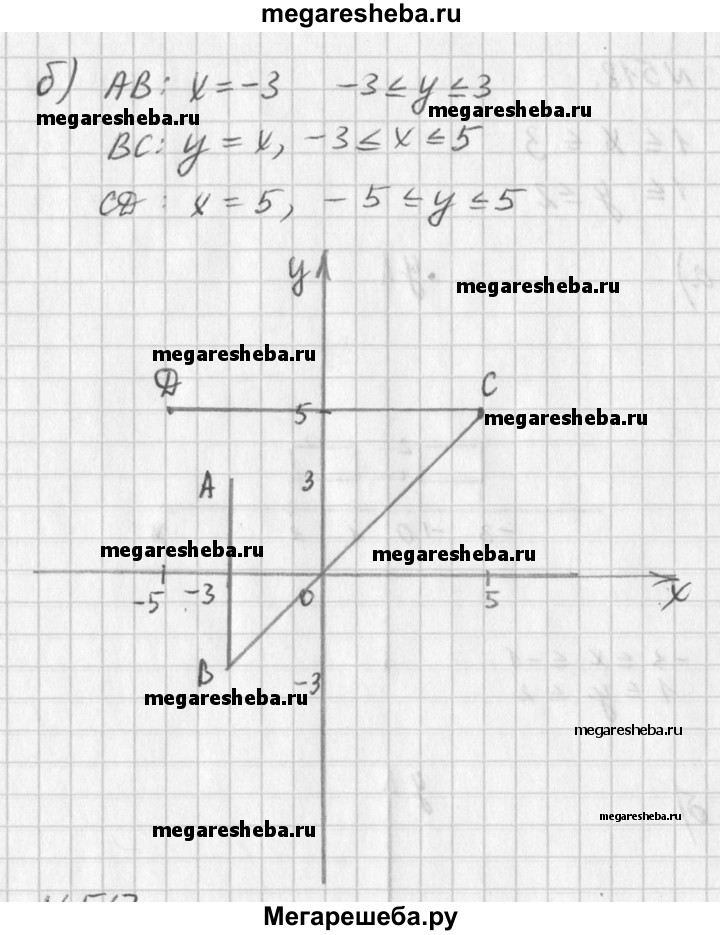 megaresheba.ru
б) AB: x = -3 -3 ≤ y ≤ 3
megaresheba.ru megaresheba.ru
BC: y = x, -3 ≤ x ≤ 5
CD: x = 5, -5 ≤ y ≤ 5
y
megaresheba.ru
megaresheba.ru
D C
5 megaresheba.ru
A 3
megaresheba.ru megaresheba.ru
-5 -3 0 5 x
B -3
megaresheba.ru
megaresheba.ru
megaresheba.ru
megaresheba.ru
Мегарешеба.ру